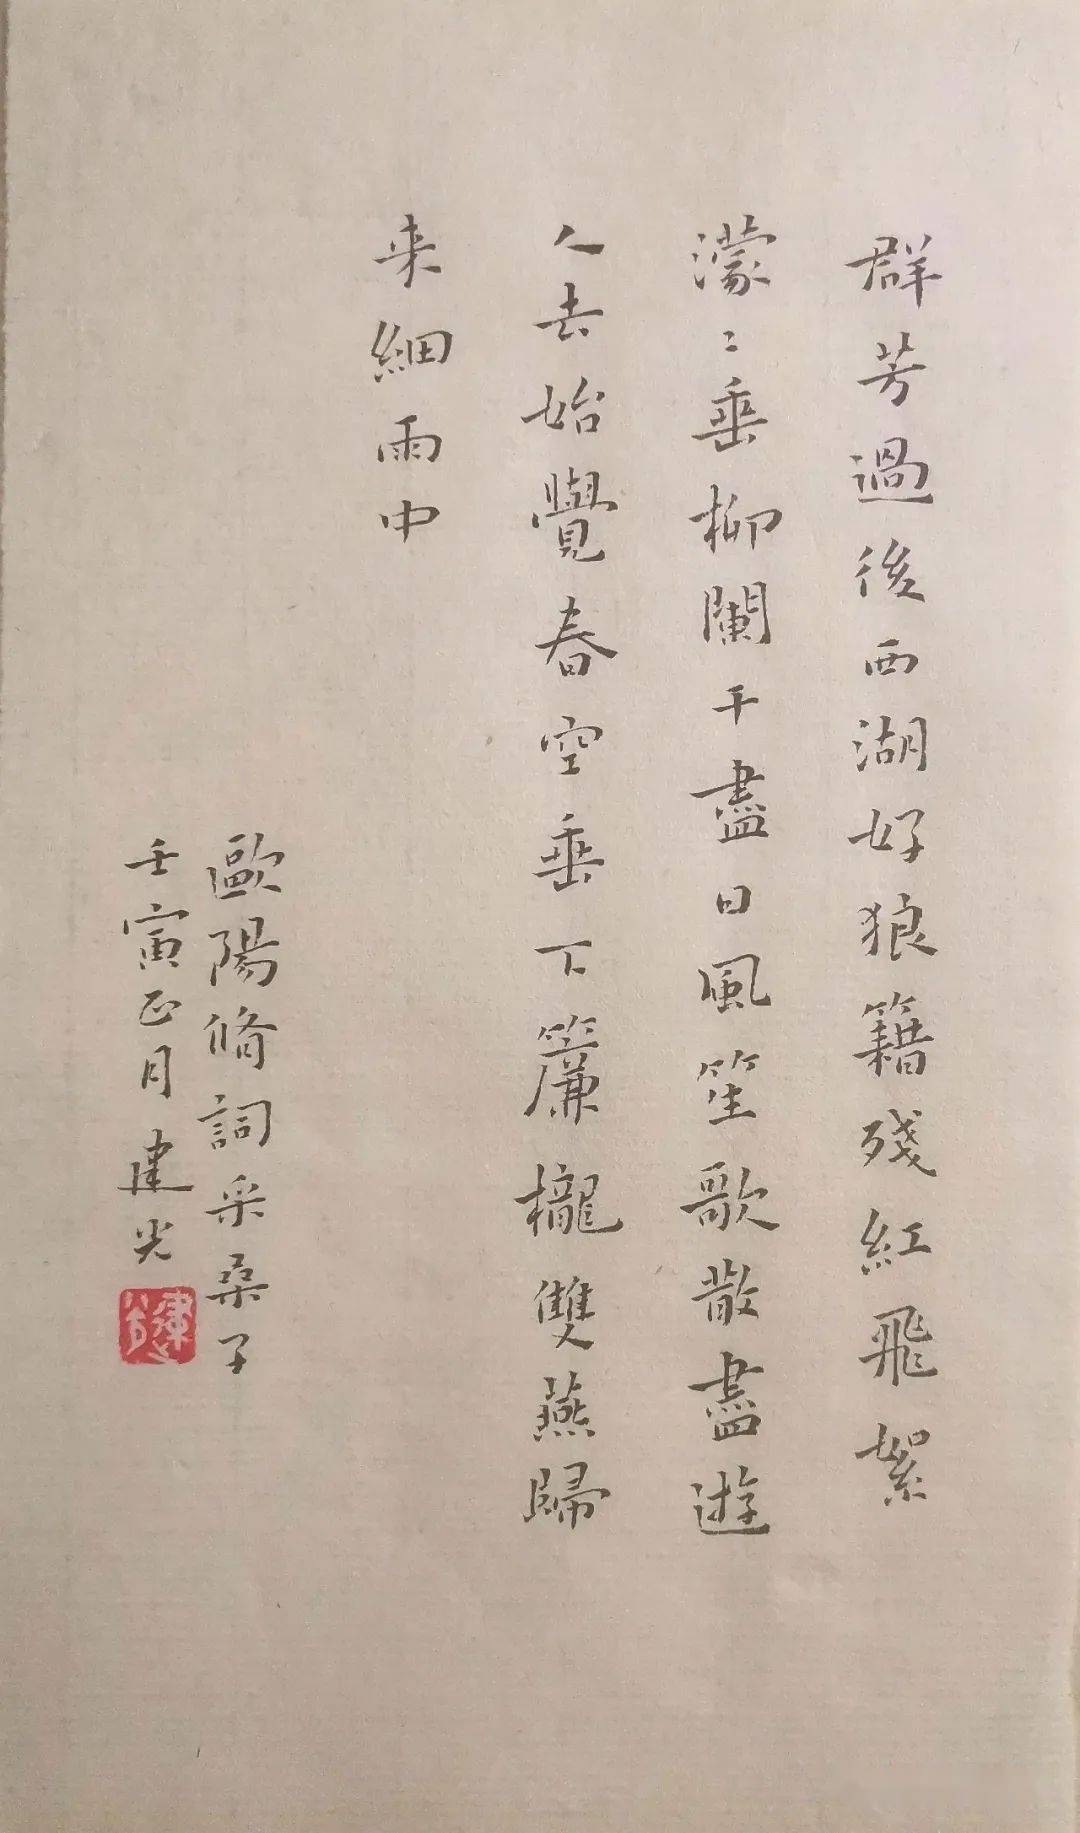 群芳過後西湖好狼籍殘紅飛絮
濛〻垂柳闌干盡日風笙歌散盡遊
人去始覺春空垂下簾櫳雙燕歸
来細雨中
歐陽脩詞采桑子
壬寅正月建光